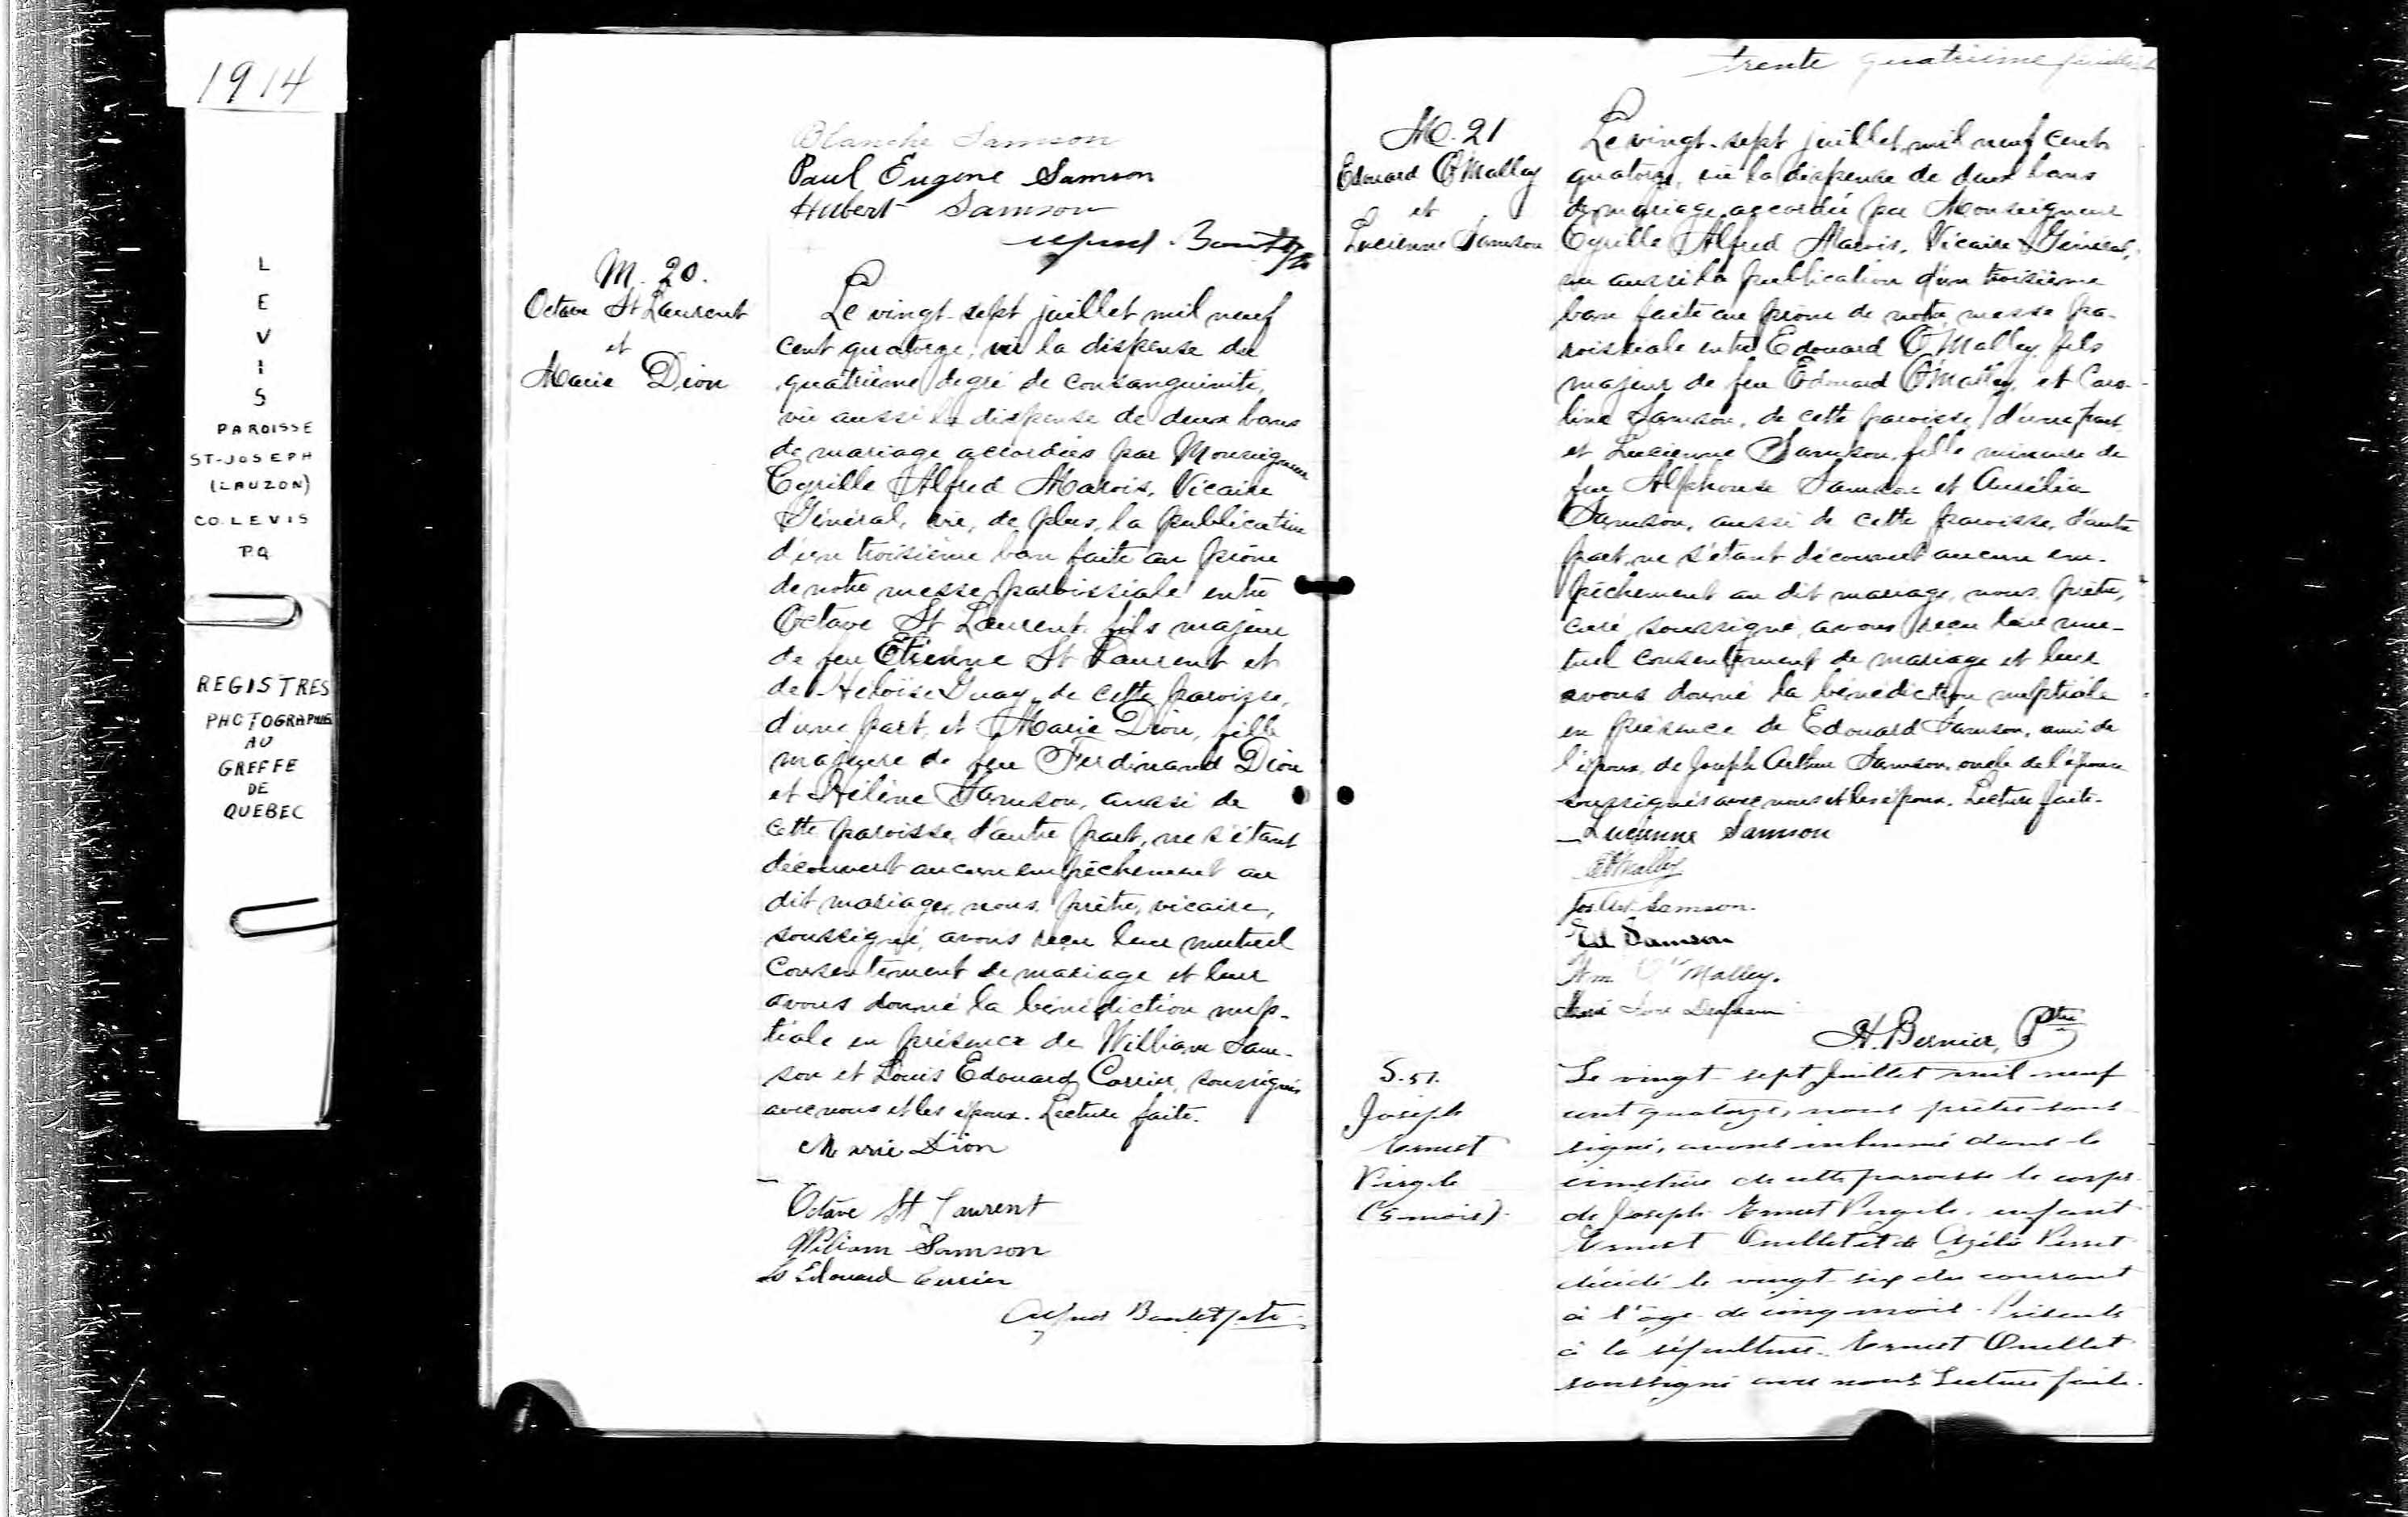 1914
L
E
V
I
S
PAROISSE
ST-JOSEPH
(LAUZON)
CO. LEVIS
P.Q
REGISTRES
PHOTOGRAPHIÉS
AU
GREFFE
DE
QUEBEC
Blanche Samson
Paul Eugene Samson
Hubert Samson
Alfred
M. 20.
Octave St Laurent
et
Marie Dion
Le vingt-sept juillet mil neuf
cent quatorze, vu la dispense du
quatrième degré de consanguinité,
vu aussi la dispense de deux bans
de mariage accordées par Monseigneur
Cyrille Alfred Marois, Vicaire
Général, vu, de plus, la publication
d'un troisième ban faite au prône
de notre messe paroissiale entre
Octave St Laurent, fils majeur
de feu Etienne St Laurent et
de Héloïse Guay, de cette paroisse,
d'une part, et Marie Dion, fille
majeure de feu Ferdinand Dion
et Hélène Samson, aussi de
cette paroisse, d'autre part, ne s'étant
découvert aucun empêchement au
dit mariage, nous, prêtre, vicaire,
soussigné, avons reçu leur mutuel
consentement de mariage et leur
avons donné la bénédiction nup-
tiale en présence de William Sam-
son et Louis Edouard Carrier, soussignés
avec nous et les époux. Lecture faite.
Marie Dion
Octave St Laurent
William Samson
Ls Edouard Carrier
Alfred Boulet ptre
trente quatrième feuillet
M. 21
Edouard O'Malley
et
Lucienne Samson
Le vingt-sept juillet, mil neuf cent
quatorze, vu la dispense de deux bans
de mariage accordée par Monseigneur
Cyrille Alfred Marois, Vicaire Général,
vu aussi la publication d'un troisième
ban faite au prône de notre messe pa-
roissiale entre Edouard O'Malley, fils
majeur de feu Edouard O'Malley, et Caro-
line Samson, de cette paroisse, d'une part
et Lucienne Samson, fille mineure de
feu Alphonse Samson et Aurélia
Samson, aussi de cette paroisse, d'autre
part, ne s'étant découvert aucun em-
pêchement au dit mariage, nous, prêtre,
curé, soussigné, avons reçu leur mu-
tuel consentement de mariage et leur
avons donné la bénédiction nuptiale
en présence de Edouard Samson, ami de
l'époux, de Joseph Arthur Samson, oncle de l'épouse
soussignés avec nous et les époux. Lecture faite.
Lucienne Samson
O'Malley
Jos. Art. Samson.
Ed Samson
Wm O'Malley.
H. Bernier, Ptre
S. 51.
Joseph
Ernest
Virgile
(5 mois)
Le vingt-sept Juillet mil neuf
cent quatorze, nous prêtre sous-
signé, avons inhumé dans le
cimetière de cette paroisse le corps
de Joseph Ernest Virgile, enfant
Ernest Ouellet et de Azélie
décédé le vingt-six du courant
à l'âge de cinq mois. Présents
à la sépulture. Ernest Ouellet
soussigné avec nous. Lecture faite.